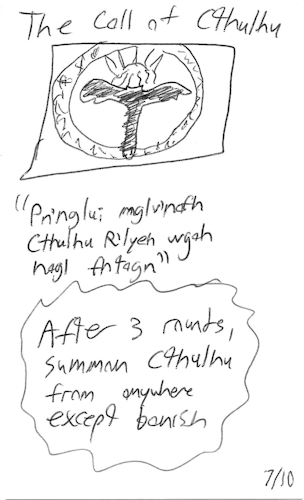 The Call of Cthulhu
"Pn'nglui mglvinafh
Cthulhu R'lyeh wgah
nagl fhtagn"
After 3 rounds,
summon Cthulhu
from anywhere
except banish
7/10